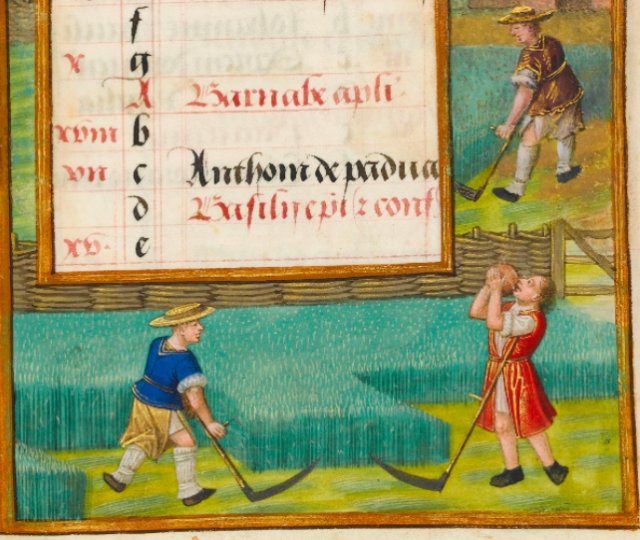 f
x g
A Barnabe apli
xviii b
vii c Anthonii de padua
d Basilii epi & conf
xv e